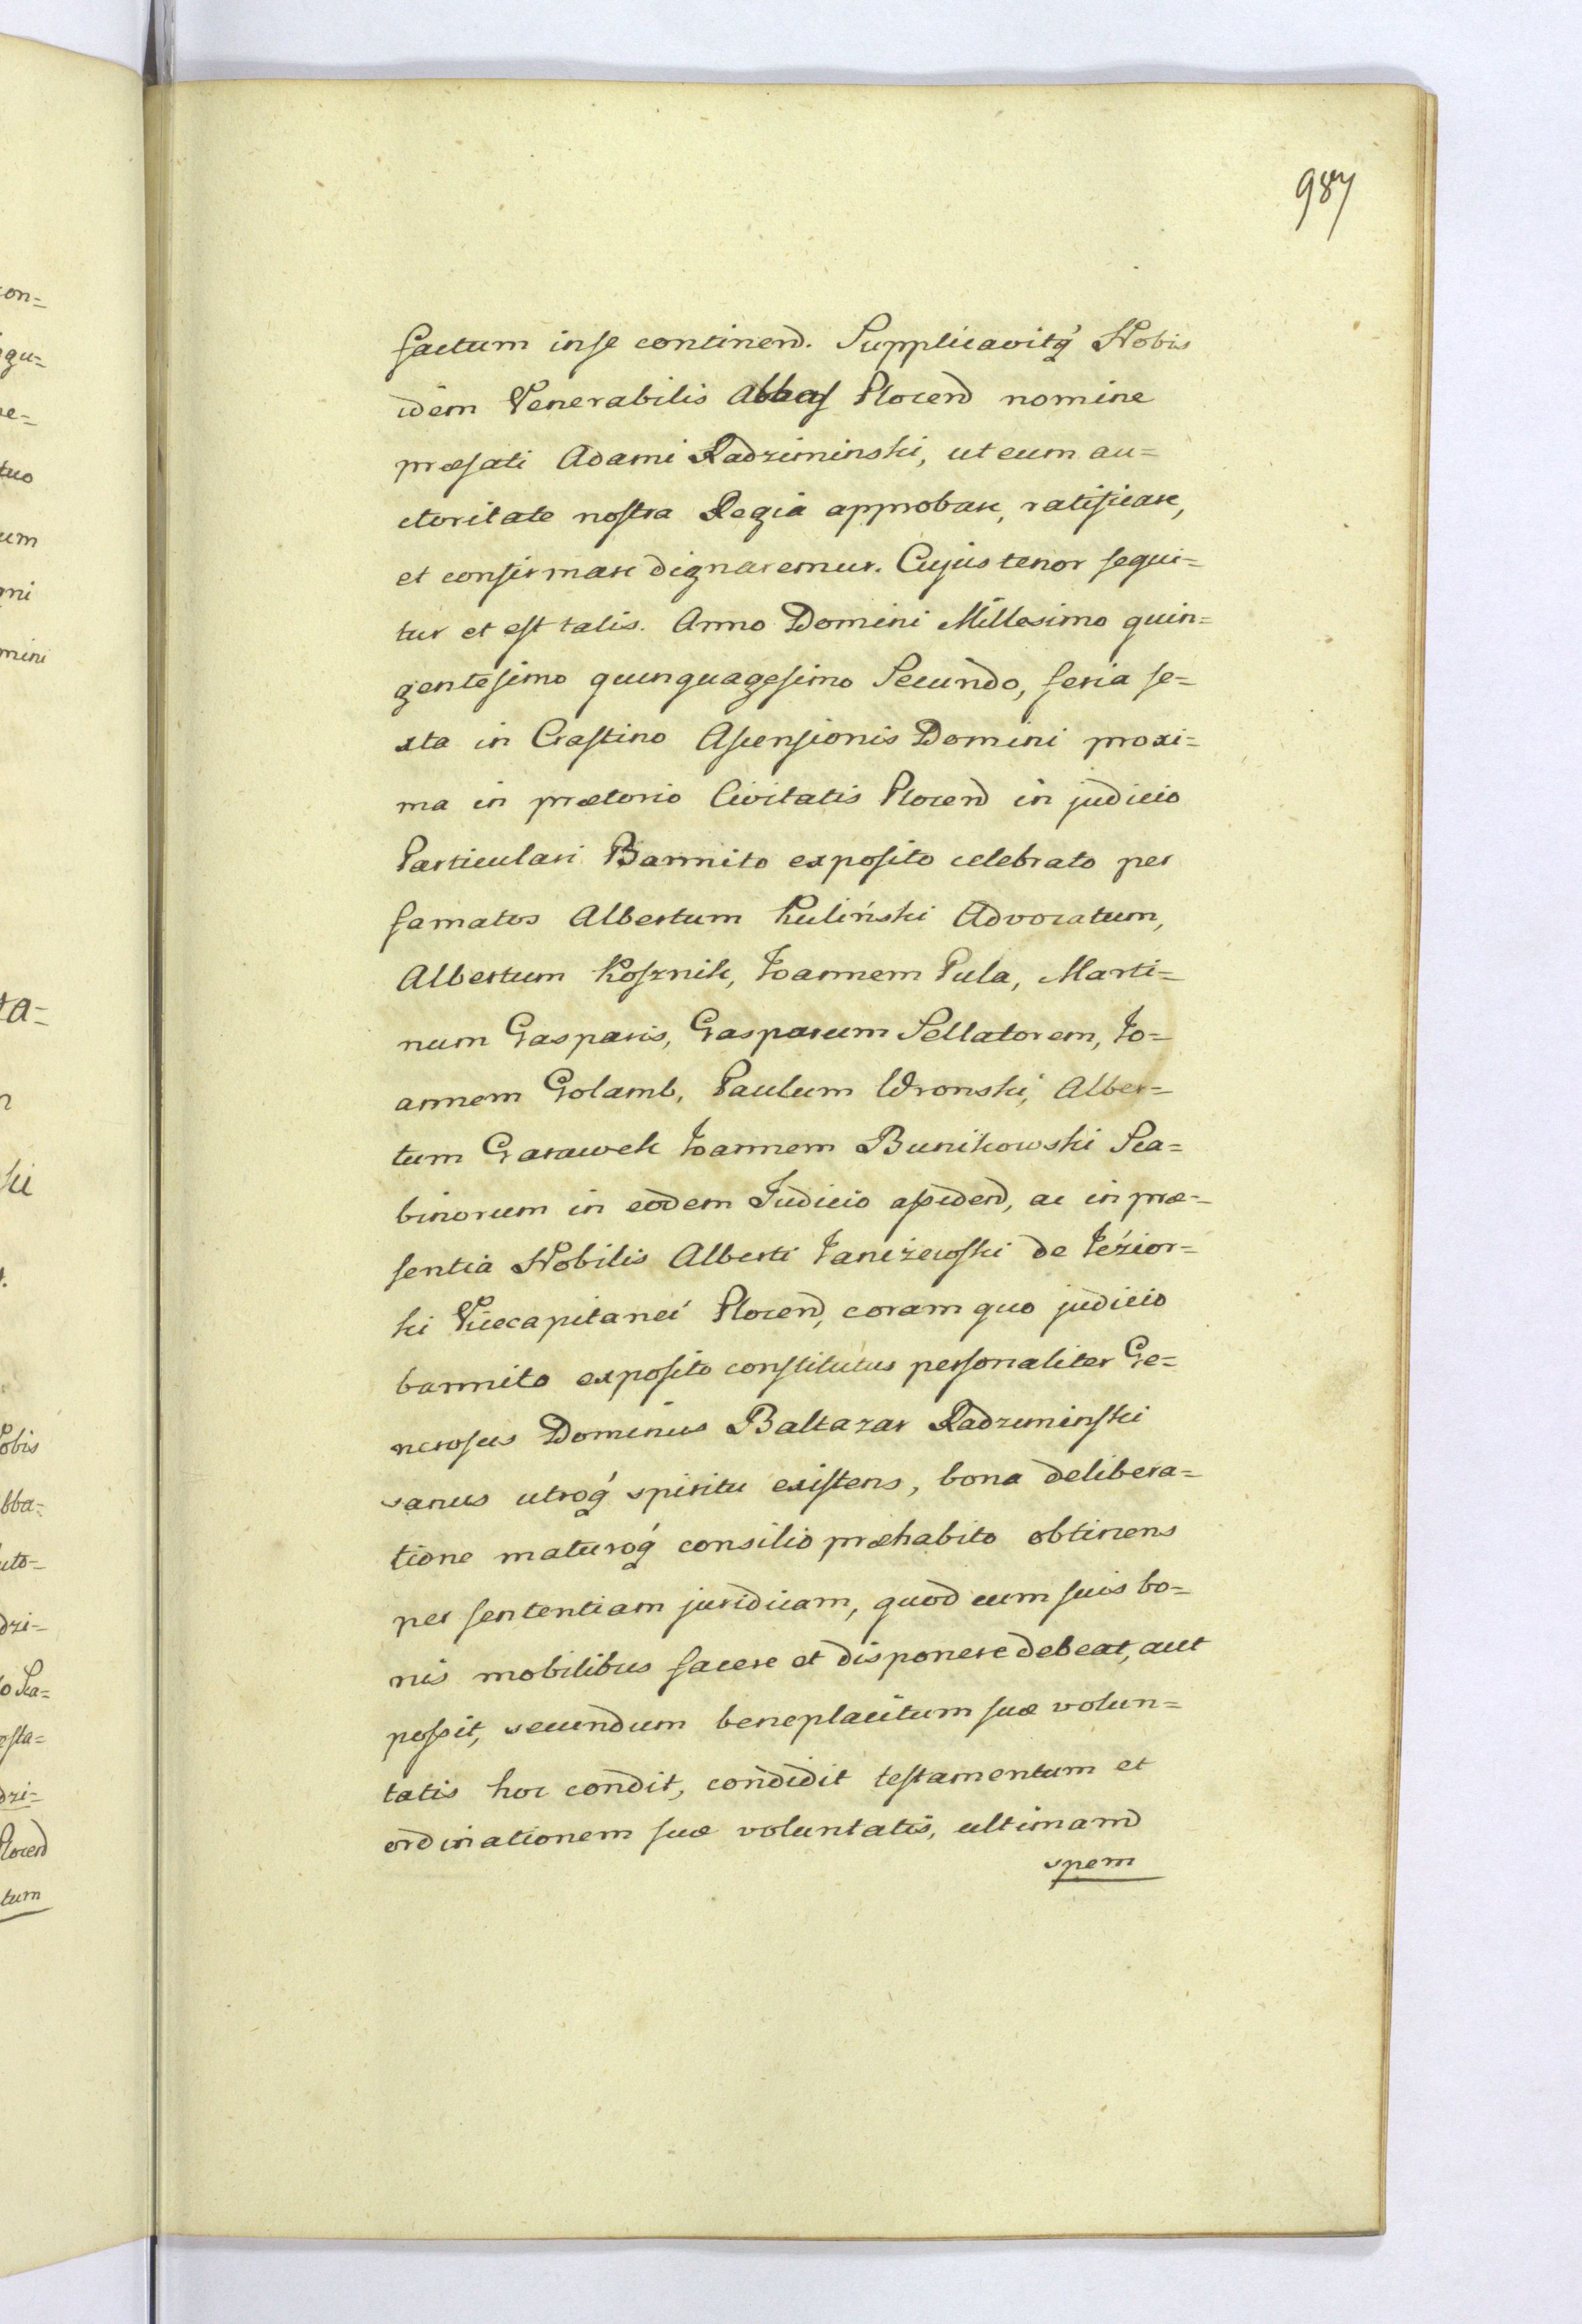 987
factum in se continend. Supplicavitq́ Nobis
idem Venerabilis Abbas Plocend nomine
præfati Adami Radziminski, ut eum au=
ctoritate nostra Regia approbare, ratificare,
et confirmare dignaremur. Cujus tenor sequi=
tur et est talis. Anno Domini Millesimo quin=
gentesimo quinquagesimo Secundo, feria se=
xta in Crastino Ascensionis Domini proxi=
ma in prætorio Civitatis Plocend in judicio
Particulari Bannito exposito celebrato per
famatos Albertum Kuliński Advocatum,
Albertum Kosznik, Joannem Pula, Marti=
num Gasparis, Gasparum Sellatorem, Jo=
annem Golamb, Paulum Wronski, Alber=
tum Garawek Joannem Bunikowski Sca=
binorum in eodem Judicio assidend, ac in præ=
sentia Nobilis Alberti Janiżewski de Jéżior=
ki Vicecapitanei Plocend, coram quo judicio
bannito exposito constitutus personaliter Ge=
nerosus Dominus Baltazar Radzuminski
sanus utroq́ spiritu existens, bona delibera=
tione maturoq́ consilio præhabito obtinens
per sententiam juridicam, quod cum suis bo=
nis mobilibus facere et disponere debeat, aut
possit, secundum beneplacitum suæ volun=
tatis hoc condit, condidit testamentum et
ordinationem suæ voluntatis, ultimamd
spem
con=
igu=
tuo
um
mini
ra=
ki
Nobis
bba=
uto=
dzi=
o Sca=
esta=
dzi=
Plocend
tum